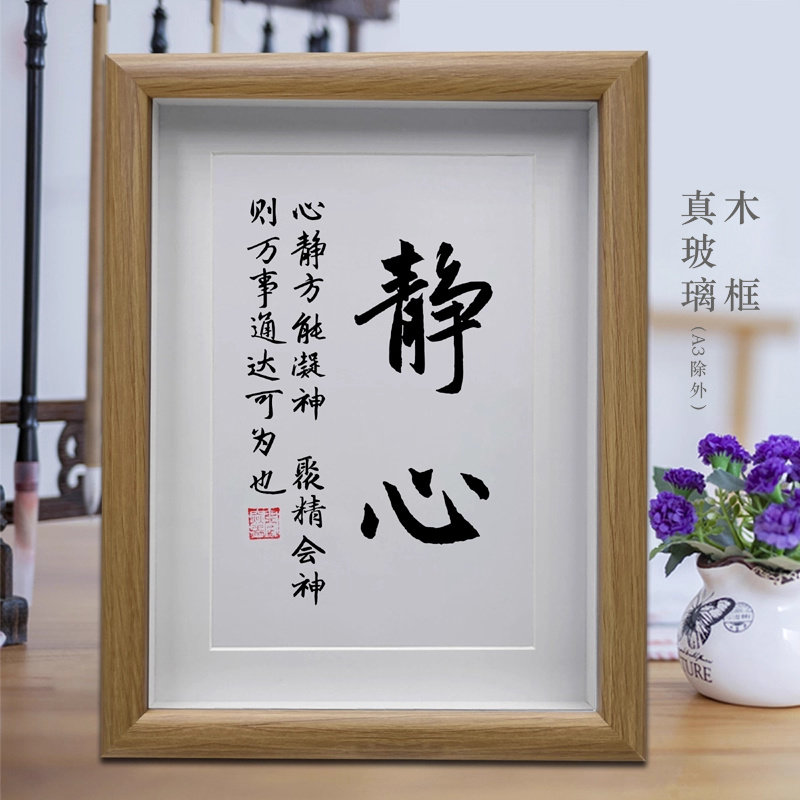 静心
心静方能凝神 聚精会神
则万事通达可为也
木框
真玻璃(A3除外)
TURE